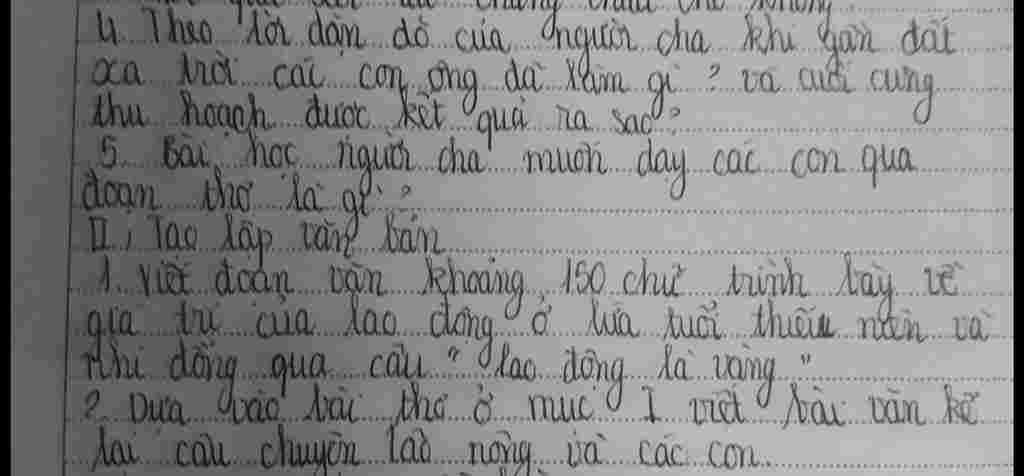 4. Theo lời dặn dò của người cha khi gần đất
xa trời các con ông đã làm gì? và cuối cùng
thu hoạch được kết quả ra sao?
5. Bài học người cha muốn dạy các con qua
đoạn thơ là gì?
II, Tạo lập văn bản
1. Viết đoạn văn khoảng 150 chữ trình bày về
giá trị của lao động ở lứa tuổi thiếu niên và
nhi đồng qua câu "lao động là vàng"
2. Dựa vào bài thơ ở mục I viết bài văn kể
lại câu chuyện lão nông và các con.